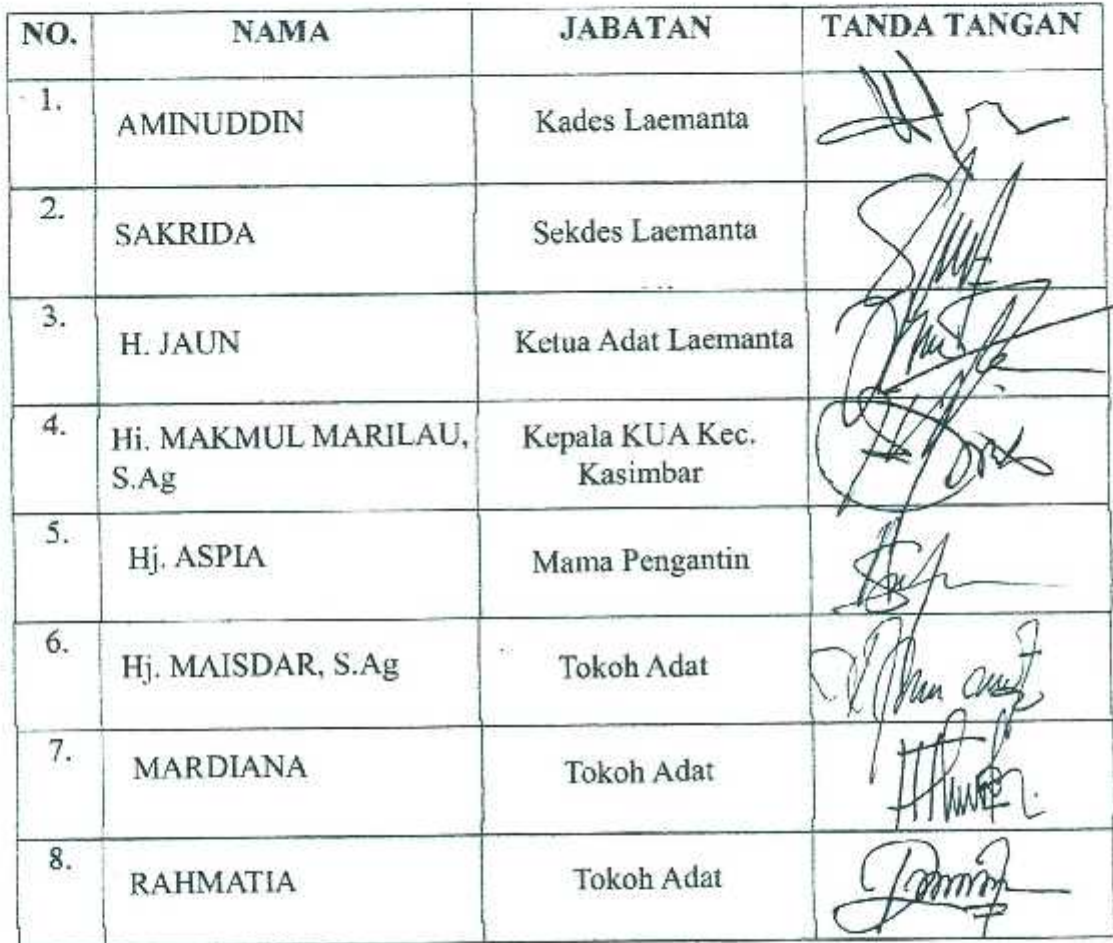 NO. NAMA JABATAN TANDA TANGAN
1. AMINUDDIN Kades Laemanta
2. SAKRIDA Sekdes Laemanta
3. H. JAUN Ketua Adat Laemanta
4. Hi. MAKMUL MARILAU, Kepala KUA Kec.
S.Ag Kasimbar
5. Hj. ASPIA Mama Pengantin
6. Hj. MAISDAR, S.Ag Tokoh Adat
7. MARDIANA Tokoh Adat
8. RAHMATIA Tokoh Adat